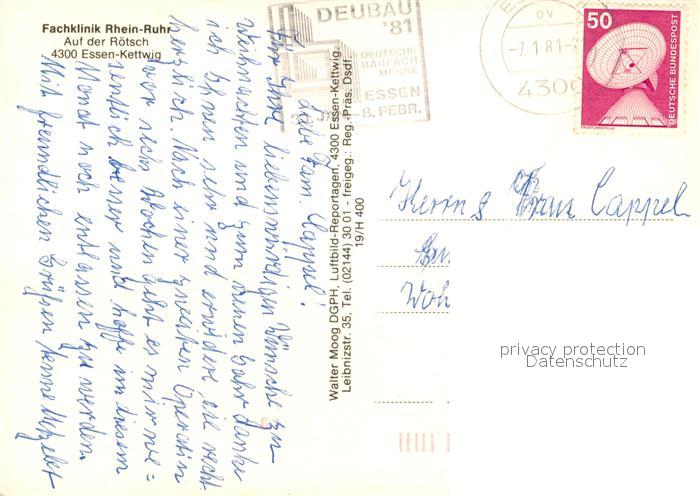 Fachklinik Rhein-Ruhr
Auf der Rötsch
4300 Essen-Kettwig
DEUBAU
'81
DEUTSCHE
BAUFACH
MESSE
ESSEN
-8. FEBR.
-7.1.81-
4300
50
DEUTSCHE BUNDESPOST
ERDEFUNKSTELLE
Liebe Fam. Cappel!
Für Ihre liebenswürdigen Wünsche zu
Weihnachten und zum neuen Jahr danke
ich Ihnen sehr und erwidere sie recht
herzlich. Nach einer zweiten Operation
vor sechs Wochen geht es mir we=
sentlich besser und hoffe in diesem
Monat noch entlassen zu werden.
Mit freundlichen Grüßen
Walter Moog DGPH, Luftbild-Reportagen, 4300 Essen-Kettwig,
Leibnizstr. 35, Tel. (02144) 30 01 - freigeg.: Reg. Präs. Dsdf.
19/H 400
Herrn & Frau Cappel
privacy protection
Datenschutz